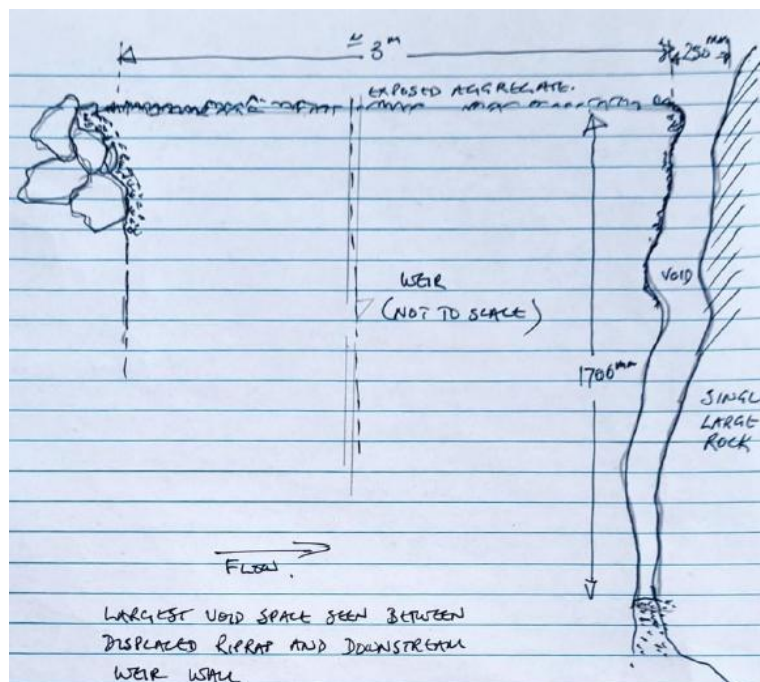 ≈ 3m
250mm
EXPOSED AGGREGATE.
VOID
WEIR
(NOT TO SCALE)
1700mm
SINGL
LARGE
ROCK
FLOW.
LARGEST VOID SPACE SEEN BETWEEN
DISPLACED RIPRAP AND DOWNSTREAM
WEIR WALL